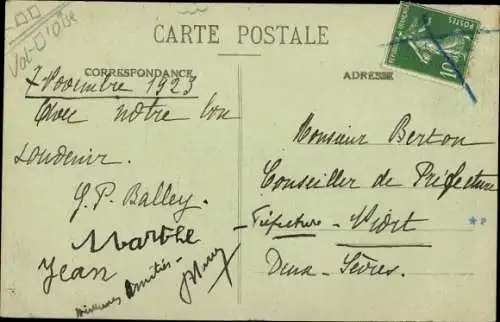 Val-D'Oise
CARTE POSTALE
CORRESPONDANCE
ADRESSE
POSTES
10
7 Novembre 1923
Avec notre bon
souvenir.
G. P. Balley.
Marthe
Jean
Amitiés
Monsieur Berton
Conseiller de Préfecture
Préfecture - Niort
Deux-Sèvres.